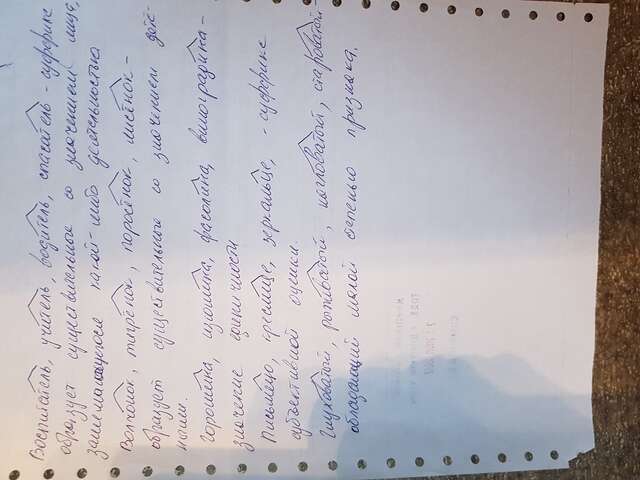 Воспитатель, учитель, водитель, спасатель - суффикс
образует существительное со значением лица,
занимающегося какой-либо деятельностью
Волчонок, тигрёнок, поросёнок, лисёнок -
образует существительные со значением дете-
ныши.
Горошина, изюмина, фасолина, виноградина -
значение единичности
Письмецо, креслице, зеркальце, - суффикс
субъективной оценки.
Глуховатый, рыжеватый, нагловатый, староватый
обладающий малой степенью признака.